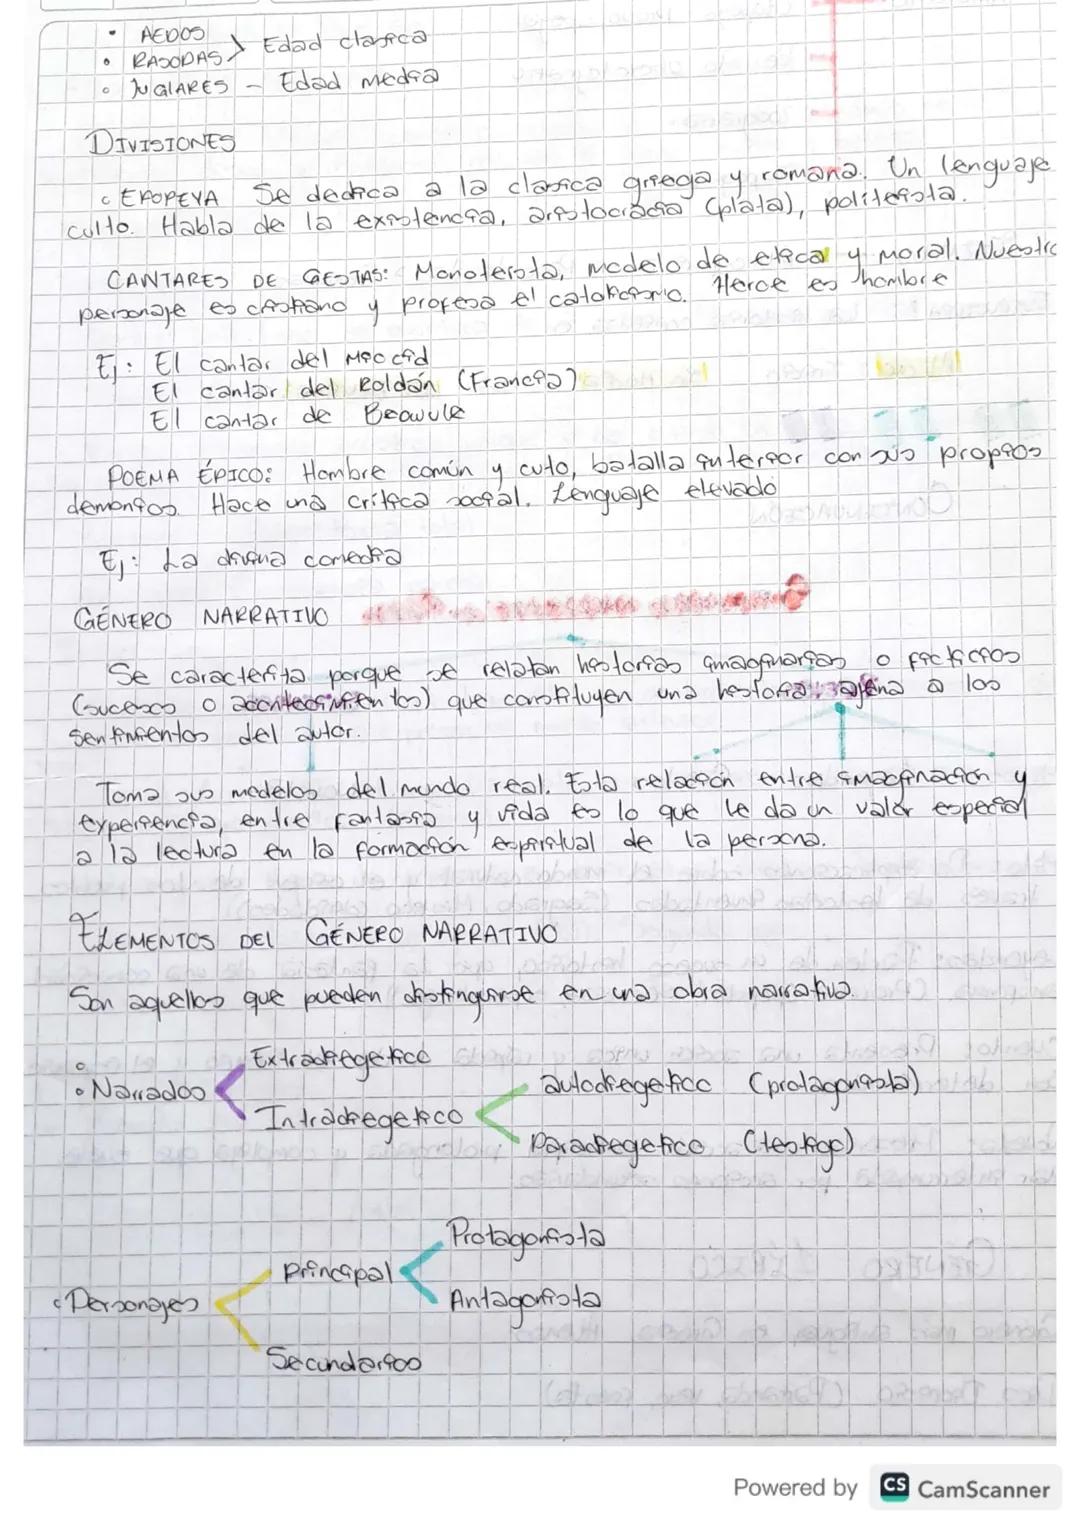 • AEDOS
• RASODAS > Edad clasica
• JUGlARES - Edad media
DIVISIONES
• EPOPEYA Se dedica a la clasica griega y romana. Un lenguaje
culto. Habla de la existencia, aristocracia (plata), politeista.
CANTARES DE GESTAS: Monoteista, modelo de etica y moral. Nuestro
personaje es cristiano y profesa el catolicismo. Heroe es hombre
Ej: El cantar del Mio cid
El cantar del Roldán (Francia)
El cantar de Beowulf
POEMA ÉPICO: Hombre común y cuto, batalla interior con sus propios
demonios. Hace una critica social. Lenguaje elevado
Ej: La divina comedia
GÉNERO NARRATIVO
Se caracteriza porque se relatan historias imaginarias o ficticios
(sucesos o acontecimientos) que constituyen una historia ajena a los
sentimientos del autor.
Toma sus modelos del mundo real. Esta relación entre imaginación y
experiencia, entre fantasia y vida es lo que le da un valor especial
a la lectura en la formación espiritual de la persona.
ELEMENTOS DEL GÉNERO NARRATIVO
Son aquellos que pueden distinguirse en una obra narrativa.
Extradiegetico
• Narrador
autodiegetico (protagonista)
Intradiegetico
Paradiegetico (testigo)
Protagonista
Principal
• Personajes
Antagonista
Secundarios
Powered by CS CamScanner